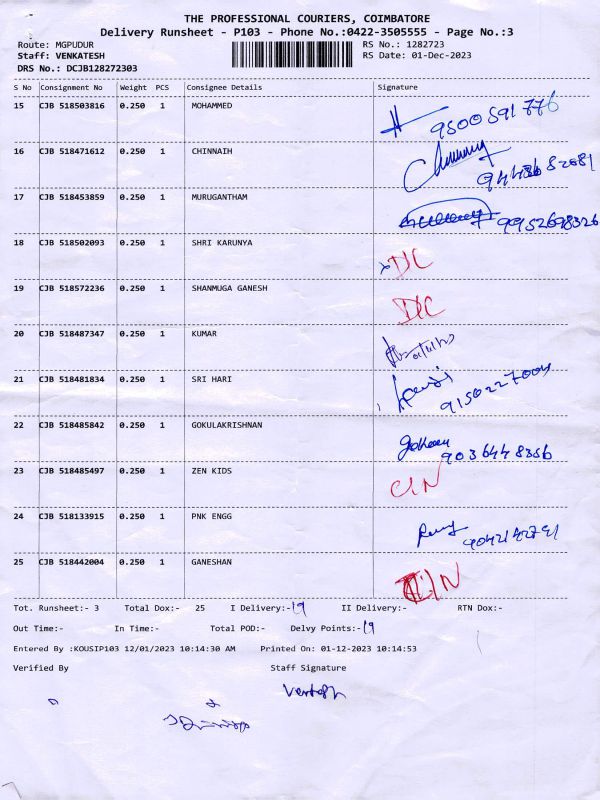 THE PROFESSIONAL COURIERS, COIMBATORE
Delivery Runsheet - P103 - Phone No.:0422-3505555 - Page No.:3
Route: MGPUDUR RS No.: 1282723
Staff: VENKATESH RS Date: 01-Dec-2023
DRS No.: DCJB128272303
S No Consignment No Weight PCS Consignee Details Signature
15 CJB 518503816 0.250 1 MOHAMMED 9500591776
16 CJB 518471612 0.250 1 CHINNAIH
17 CJB 518453859 0.250 1 MURUGANTHAM 9952698326
18 CJB 518502093 0.250 1 SHRI KARUNYA DC
19 CJB 518572236 0.250 1 SHANMUGA GANESH DC
20 CJB 518487347 0.250 1 KUMAR
21 CJB 518481834 0.250 1 SRI HARI 9150227004
22 CJB 518485842 0.250 1 GOKULAKRISHNAN 9036448356
23 CJB 518485497 0.250 1 ZEN KIDS CIN
24 CJB 518133915 0.250 1 PNK ENGG
25 CJB 518442004 0.250 1 GANESHAN
Tot. Runsheet:- 3 Total Dox:- 25 I Delivery:-19 II Delivery:- RTN Dox:-
Out Time:- In Time:- Total POD:- Delvy Points:-19
Entered By :KOUSIP103 12/01/2023 10:14:30 AM Printed On: 01-12-2023 10:14:53
Verified By Staff Signature